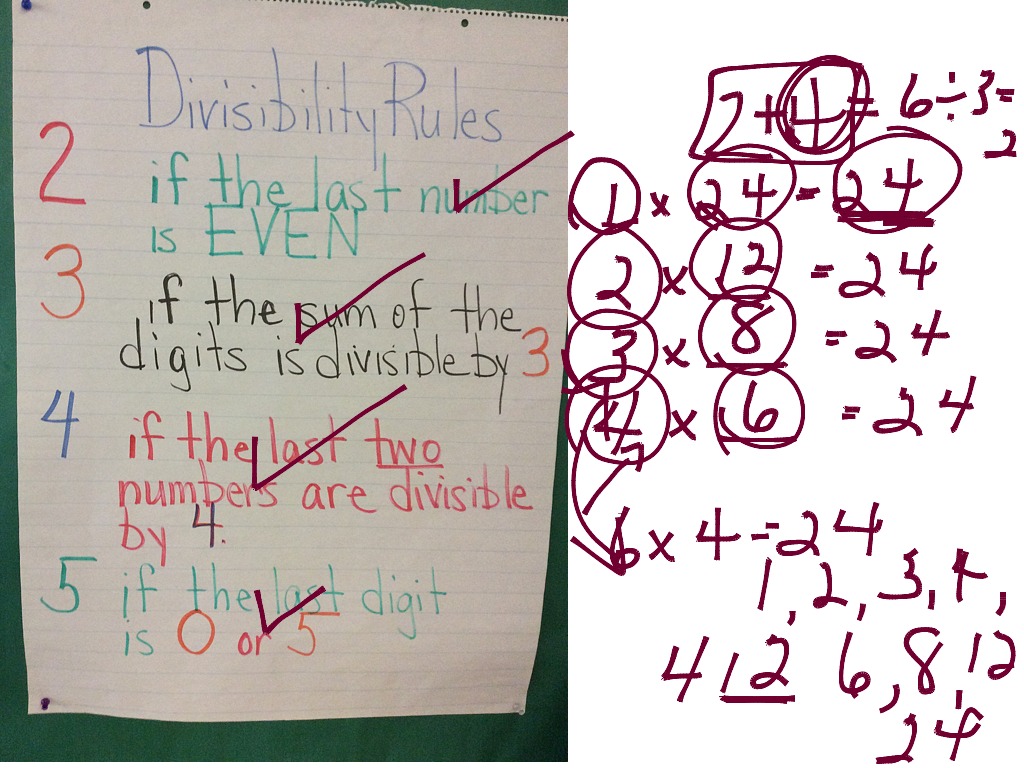 Divisibility Rules
2 if the last number
is EVEN
3 if the sum of the
digits is divisible by 3
4 if the last two
numbers are divisible
by 4.
5 if the last digit
is 0 or 5
2+4 = 6÷3=
2
1 x 24 = 24
2 x 12 = 24
3 x 8 = 24
4 x 6 = 24
6 x 4 = 24
1, 2, 3, 4,
412 6, 8, 12
24